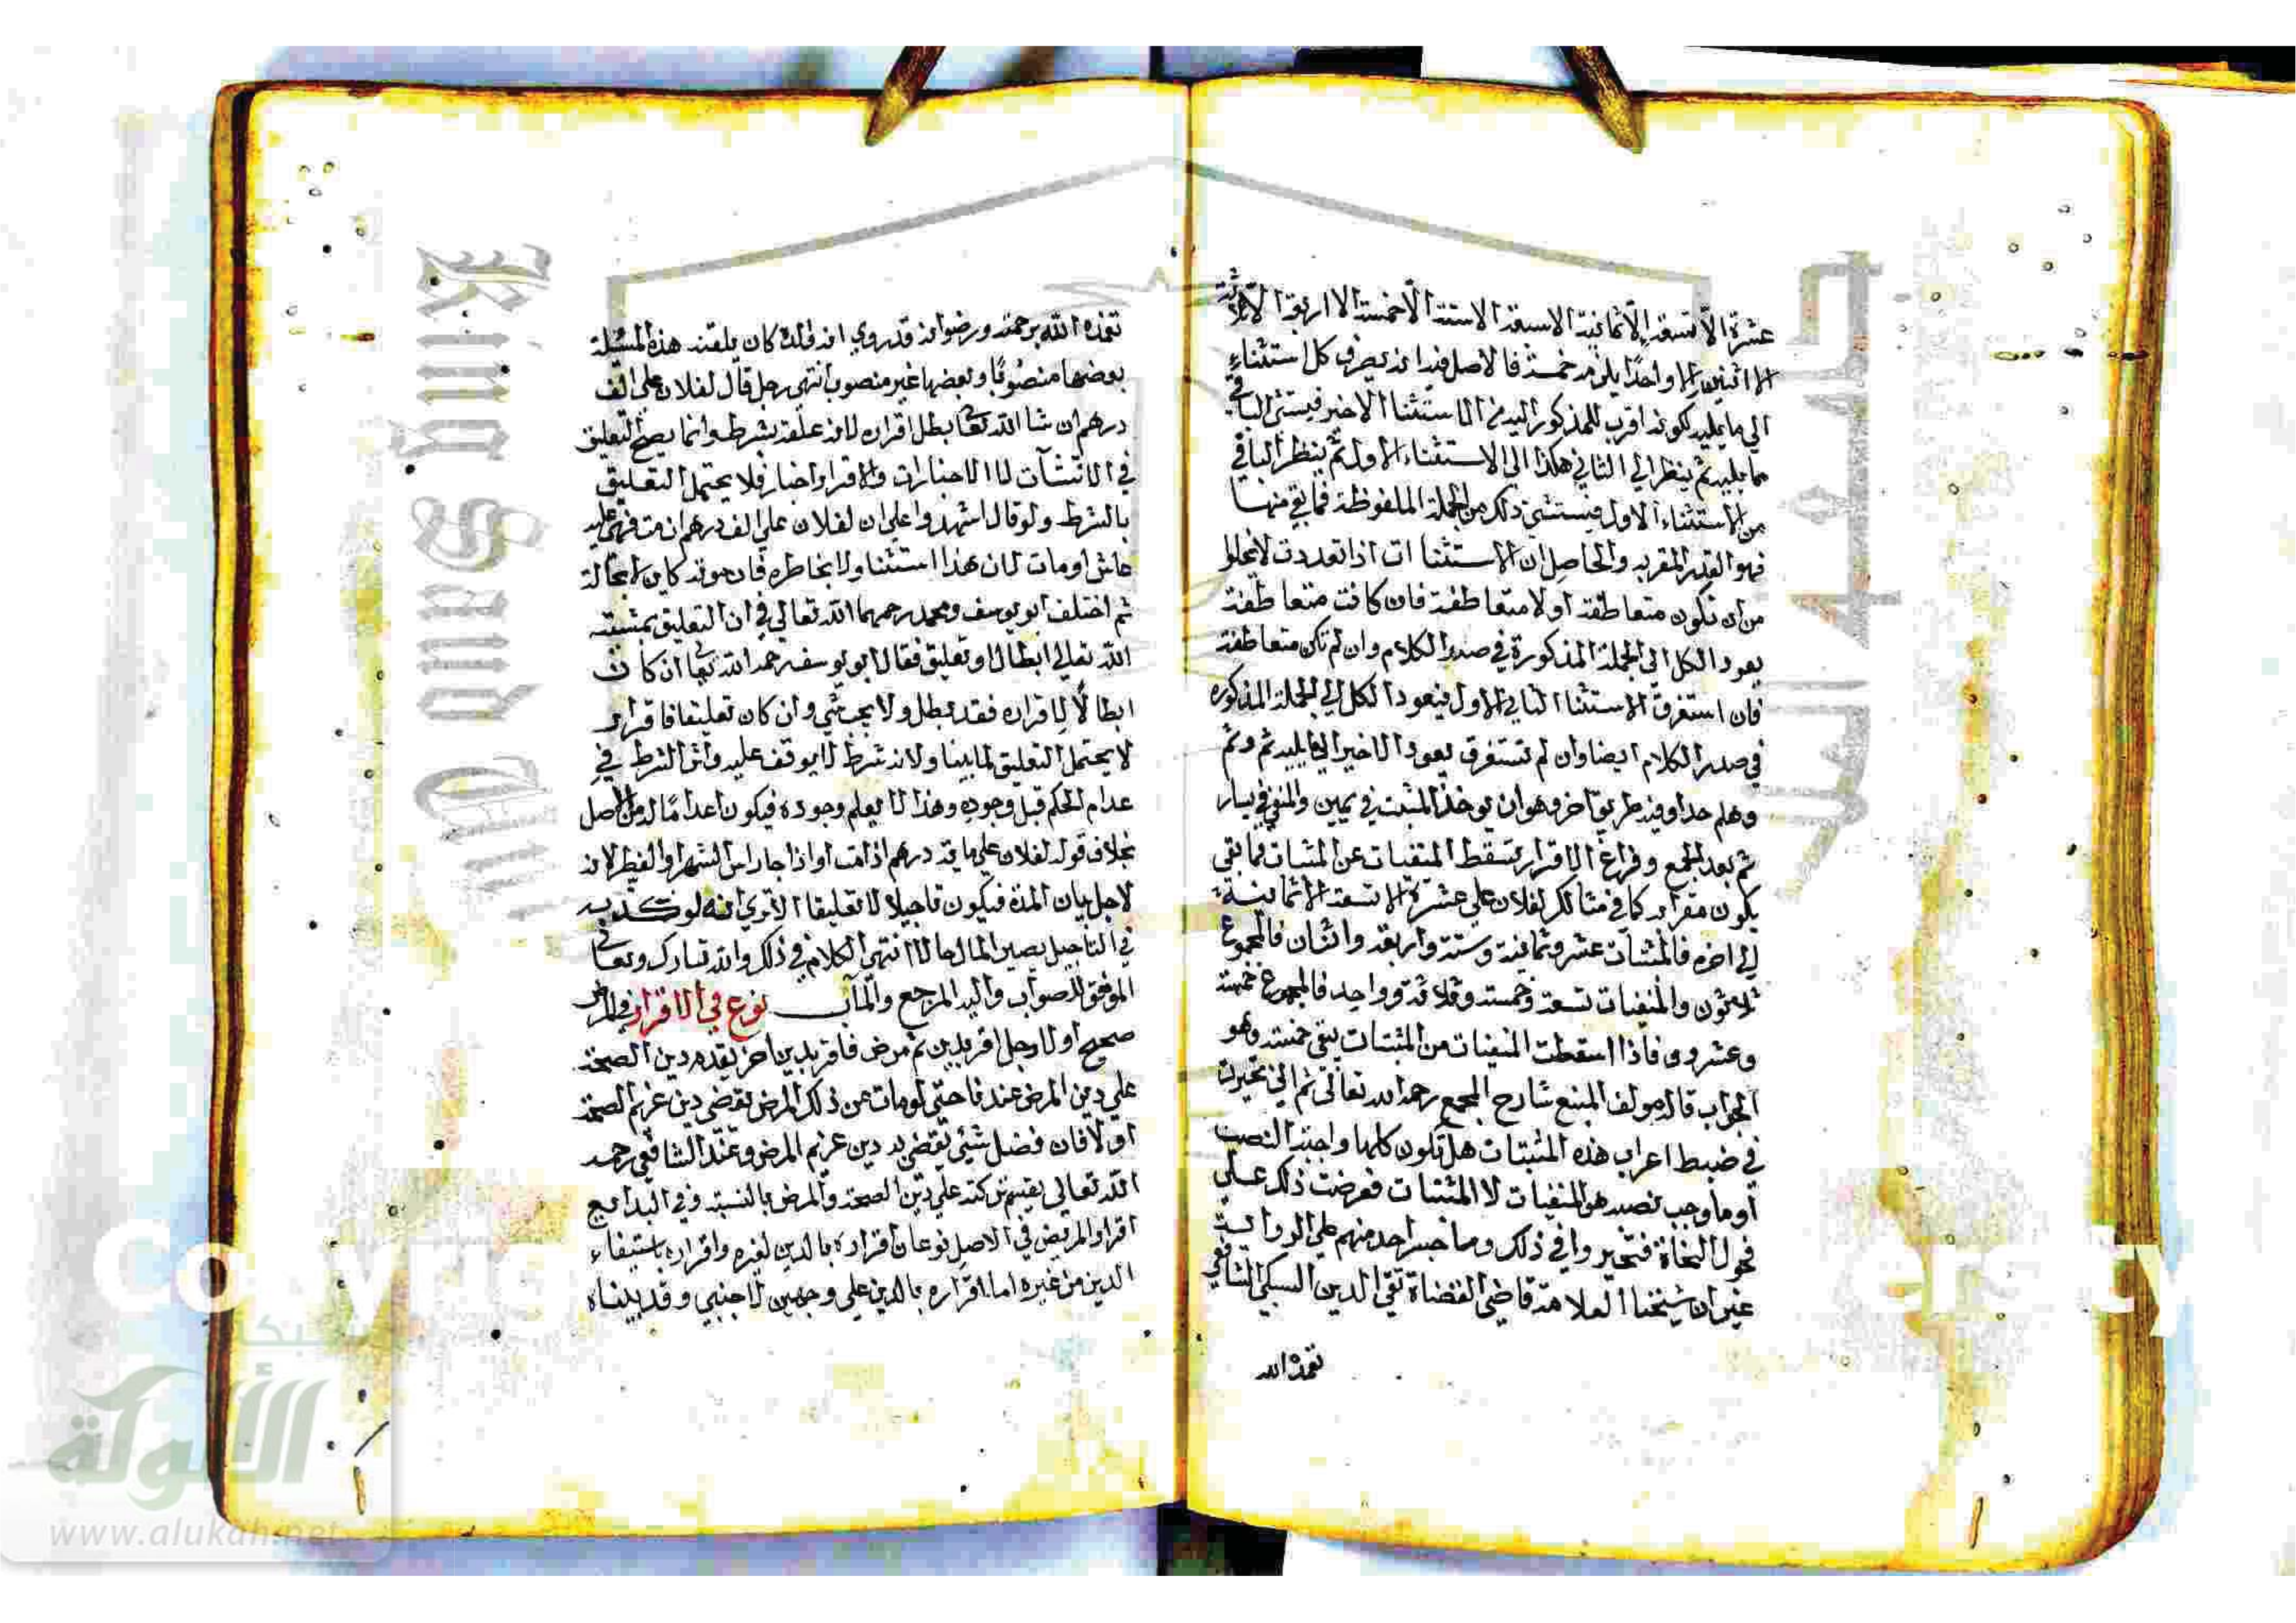 عشرة الا تسعة الا ثمانية الا سبعة الا ستة الا خمسة الا اربعة الا ثلاثة
الا اثنين الا واحدًا يلزمه خمسة فالاصل فيه انه يصرف كل استثناء
الي ما يليه لكونه اقرب المذكور اليه من الاستثنا الاخير فيستثني الباقي
مما يليه ثم ينظر الي الثاني هكذا الي الاستثناء الاول ثم ينظر الباقي
من الاستثناء الاول فيستثني ذلك من الجملة الملفوظة فما بقي منها
فهو القدر المقر به والحاصل ان الاستثنا ات اذا تعددت لا يخلوا
من ان تكون متعاطفة او لا متعاطفة فان كانت متعاطفة
يعود الكل الي الجملة المذكورة في صدر الكلام وان لم تكن متعاطفة
فان استغرق الاستثنا الثاني الاول فيعود الكل الي الجملة المذكوره
في صدر الكلام ايضا وان لم تستغرق يعود الاخير الي ما يليه ثم وثم
وهلم جدا وفيه طريق اخر وهو ان يوخذ المثبت في يمين والمنفي في يسار
ثم بعد الجمع وفراغ الاقرار تسقط المنفيات عن المثبتات فما بقي
يكون مقرا به كما في مثالك لفلان علي عشرة الا تسعة الا ثمانية
الي اخره فالمثبتات عشر وثمانية وستة واربعة واثنان فالمجموع
ثلاثون والمنفيات تسعة وخمسة وثلاثة وواحد فالمجموع خمسة
وعشرون فاذا اسقطت المنفيات من المثبتات يبقي خمسة وهو
الجواب قال مولف المنبع شارح المجمع رحمه الله تعالي ثم اني تحيرت
في ضبط اعراب هذه المثبتات هل تكون كلها واجبة النصب
او ما وجب نصبه هو المنفيات لا المثبتات فعرضت ذلك علي
فحول النحاة فتحيروا في ذلك وما جسر احد منهم علي الرواية
غير ان شيخنا العلامة قاضي القضاة تقي الدين السبكي الشافعي
تغمده الله
تغمده الله برحمته ورضوانه قد روي انه قال كان يلقنه هذه المسئلة
بعضها منصوبًا وبعضها غير منصوب انتهي رجل قال لفلان علي الف
درهم ان شا الله تعا بطل اقراره لانه علقه بشرط وانما يصح التعليق
في الانشآت لا الاخبارات والاقرار اخبار فلا يحتمل التعليق
بالشرط ولو قال اشهدوا علي ان لفلان علي الف درهم ان مت فهي عليه
عاش او مات لان هذا استثنا ولا مخاطره فان موته كاين لا محالة
ثم اختلف ابو يوسف ومحمد رحمهما الله تعالي في ان التعليق بمشيته
الله تعالي ابطال او تعليق فقال ابو يوسف رحمه الله تعا ان كان
ابطالًا لاقراره فقد بطل ولا يجب شي وان كان تعليقا فاقراره
لا يحتمل التعليق لما بينا ولانه شرط لا يوقف عليه واثر الشرط في
عدام الحكم قبل وجوده وهذا لا يعلم وجوده فيكون اعدامًا له من الاصل
بخلاف قوله لفلان علي ماية درهم اذا مت او اذا جا راس الشهر او الفطر لانه
لاجل بيان المدة فيكون تاجيلا لا تعليقا الا تري انه لو كذبه
في التاجيل يصير المال حالا انتهي الكلام في ذلك والله تبارك وتعا
الموفق للصواب واليه المرجع والمآب نوع في الاقرار في المرض
صحيح اولا رجل اقر بدين ثم مرض فاقر بدين اخر يقدم دين الصحة
علي دين المرض عندنا حتي لو مات عن ذلك المرض يقضي دين غريم الصحة
اولا فان فضل شيئ يقضي به دين غريم المرض وعند الشافعي رحمه
الله تعالي يقسم تركته علي دين الصحة والمرض بالنسبة وفي البدايع
اقرار المريض في الاصل نوعان اقراره بالدين لغيره واقراره باستيفاء
الدين من غيره اما اقراره بالدين علي وجهين لاجنبي وقد بيناه
King Saud
شبكة
الألوكة
www.alukah.net